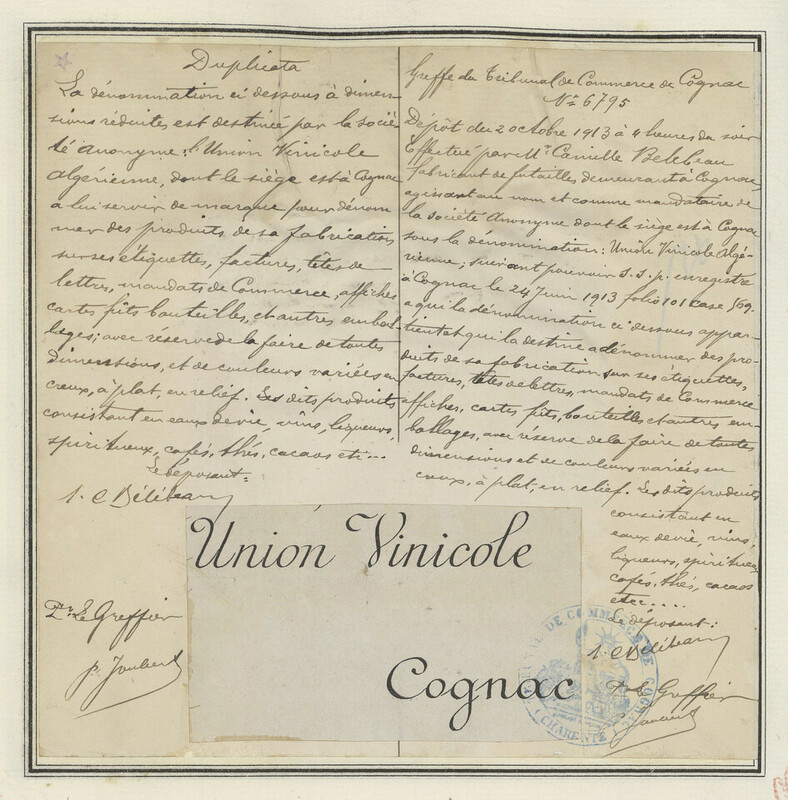 Duplicata
La dénomination ci dessous à dimen-
sions réduites est destinée par la socié-
té Anonyme: l'Union Vinicole
Algérienne, dont le siège est à Cognac
a lui servir de marque pour dénom
mer des produits de sa fabrication
sur ses étiquettes, factures, têtes de
lettres, mandats de Commerce, affiches
cartes fûts bouteilles, et autres embal-
lages; avec réserve de la faire de toutes
dimensions, et de couleurs variées en
creux, à plat, en relief. Les dits produits
consistant en eaux de vie, vins, liqueurs
spiritueux, cafés, thés, cacaos etc...
Le déposant:
Pr Le Greffier
p. Joubert
Greffe du Tribunal de Commerce de Cognac
No 6795
Dépôt du 2 octobre 1913 à 4 heures du soir
Effectué par Mr Camille
fabricant de futailles, demeurant à Cognac,
agissant au nom et comme mandataire de
la société Anonyme dont le siège est à Cognac
sous la dénomination: Union Vinicole Algé-
rienne; suivant pouvoir S.S.p. enregistré
à Cognac le 24 Juin 1913 folio 101 case 569-
a qui la dénomination ci dessous appar-
tient et qui la destine a dénommer des pro-
duits de sa fabrication sur ses étiquettes,
factures, têtes de lettres, mandats de Commerce
affiches, cartes fûts, bouteilles et autres em-
ballages, avec réserve de la faire de toutes
dimensions et de couleurs variées en
creux, à plat, en relief. Les dits produits
consistant en
eaux de vie, vins,
liqueurs, spiritueux
cafés, thés, cacaos
etc....
Le déposant:
Pr Le Greffier
Union Vinicole
Cognac
TRIBUNAL DE COMMERCE DE COGNAC
(CHARENTE)